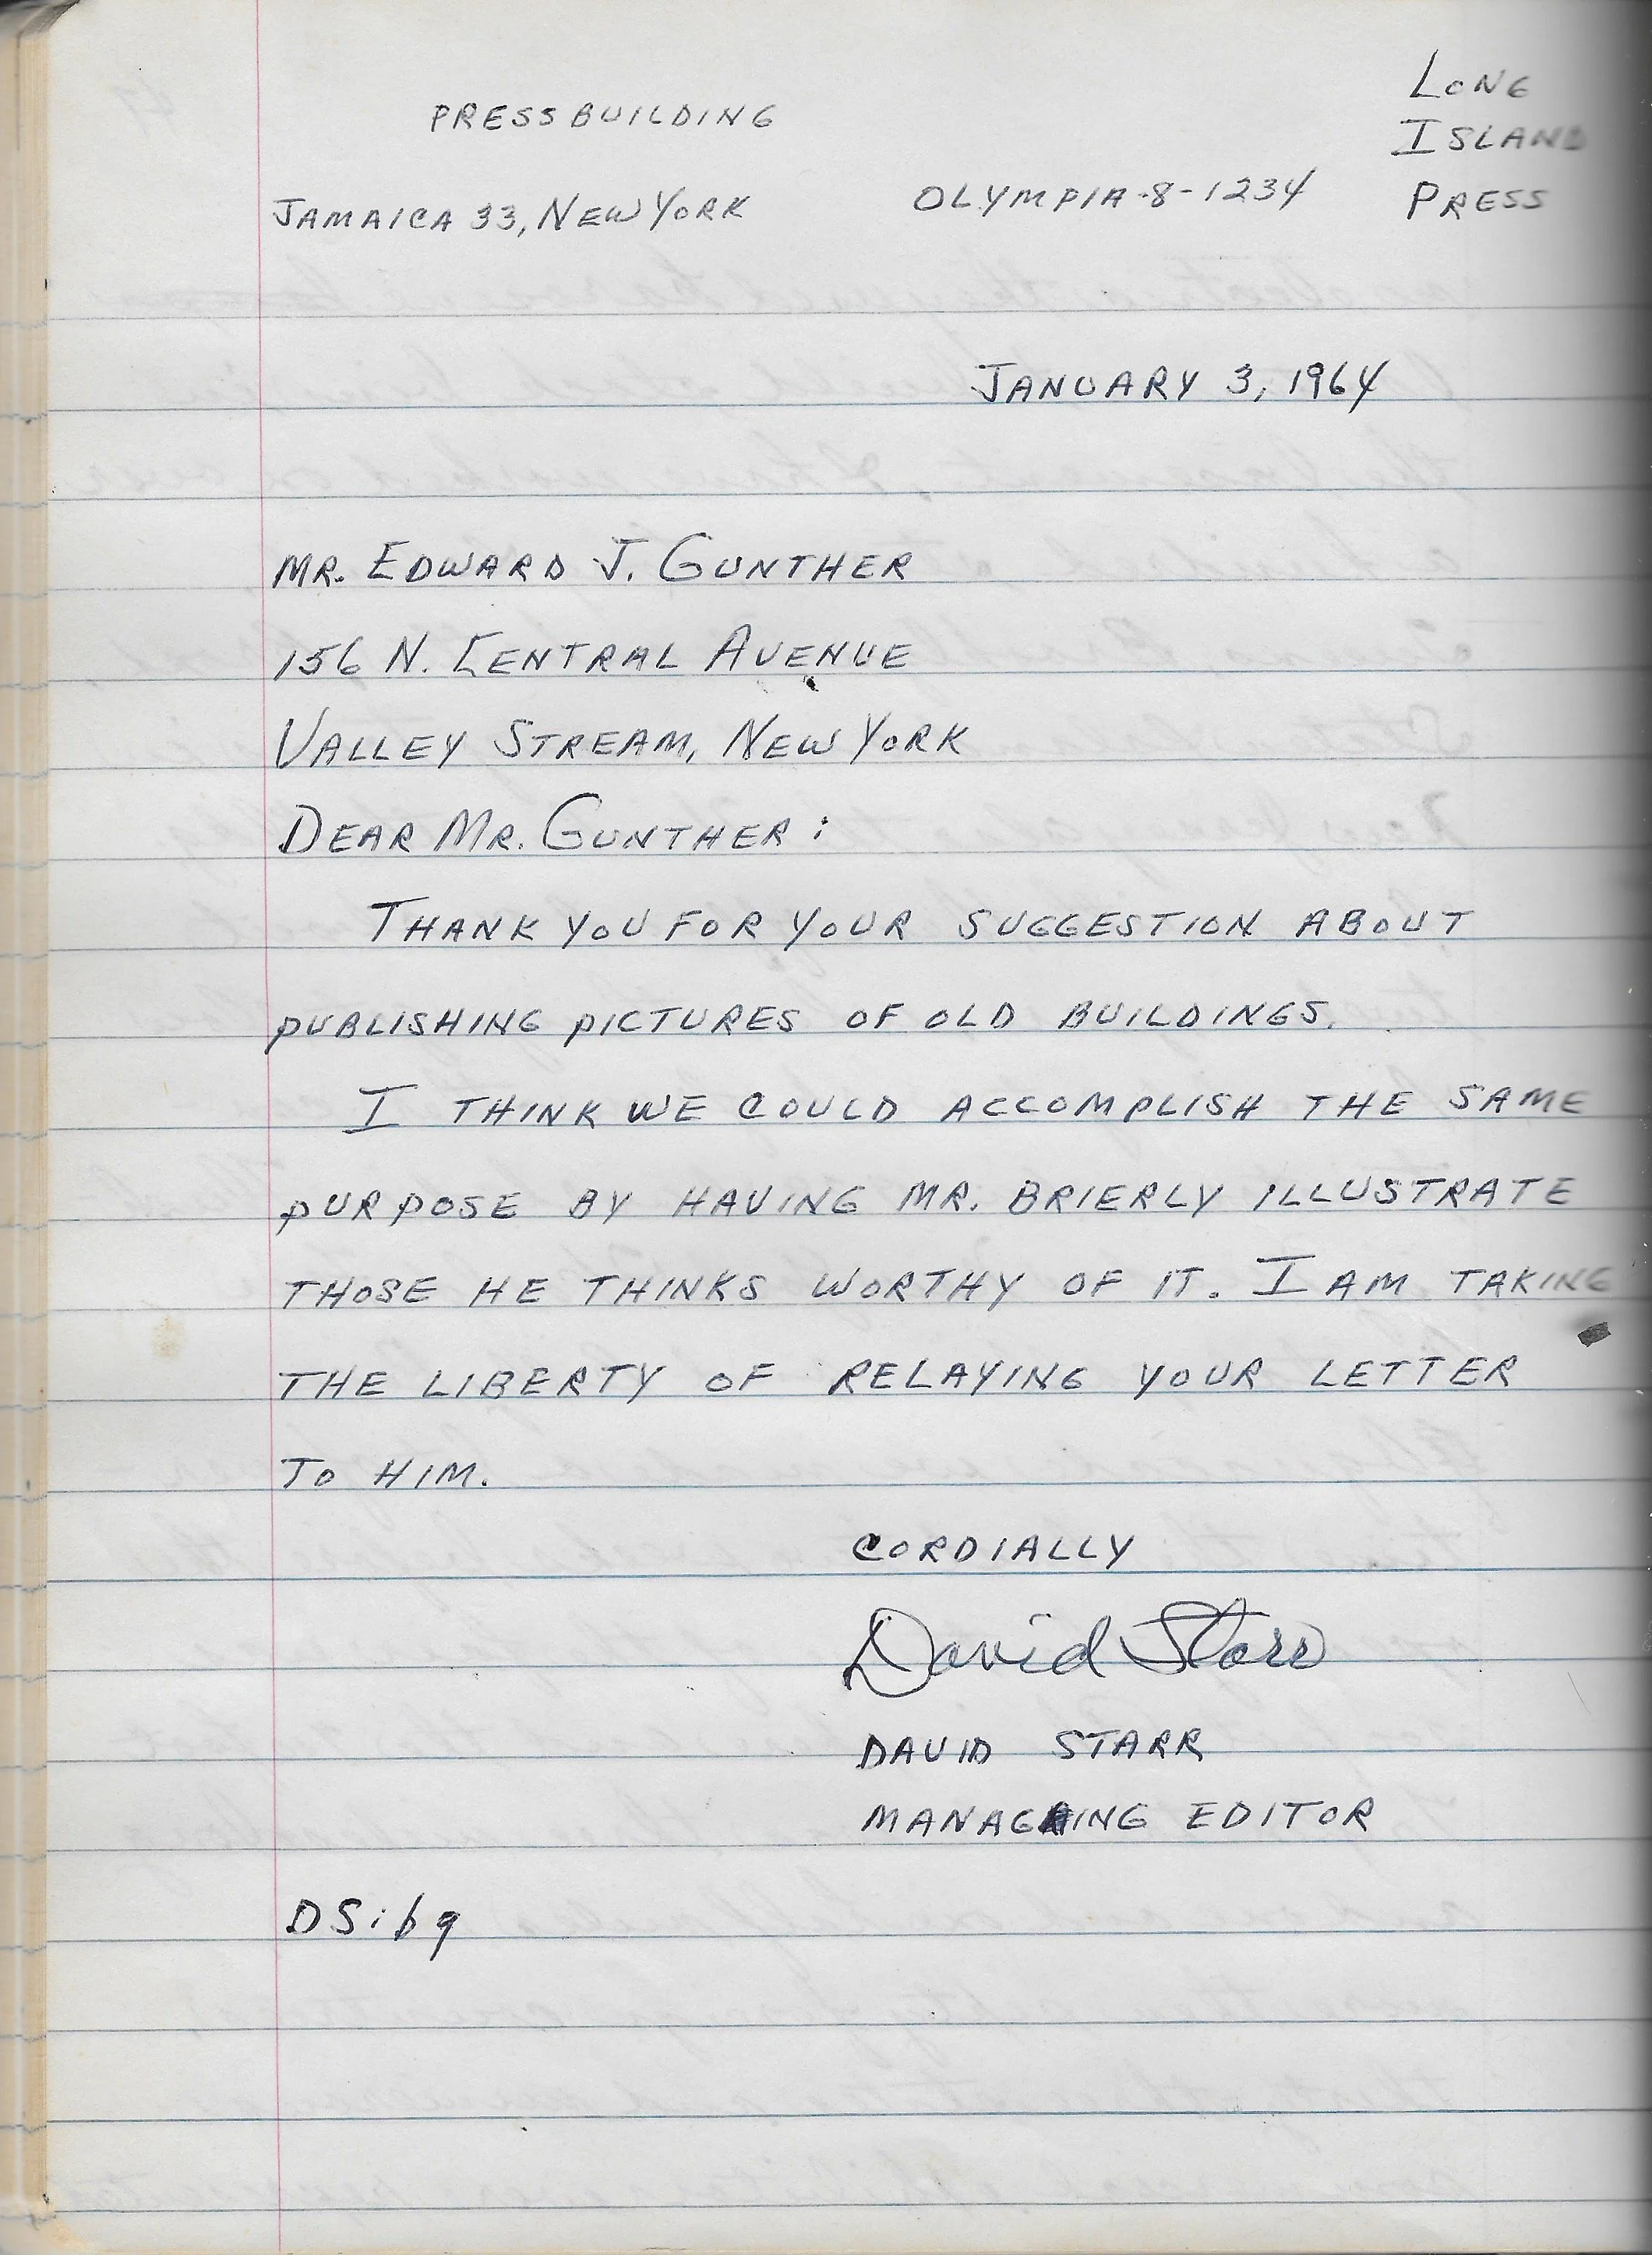 LONG
PRESS BUILDING
ISLAND
JAMAICA 33, NEW YORK OLYMPIA-8-1234 PRESS
JANUARY 3, 1964
MR. EDWARD J. GUNTHER
156 N. CENTRAL AVENUE
VALLEY STREAM, NEW YORK
DEAR MR. GUNTHER:
THANK YOU FOR YOUR SUGGESTION ABOUT
PUBLISHING PICTURES OF OLD BUILDINGS.
I THINK WE COULD ACCOMPLISH THE SAME
PURPOSE BY HAVING MR. BRIERLY ILLUSTRATE
THOSE HE THINKS WORTHY OF IT. I AM TAKING
THE LIBERTY OF RELAYING YOUR LETTER
TO HIM.
CORDIALLY
David Starr
DAVID STARR
MANAGING EDITOR
DS:bg